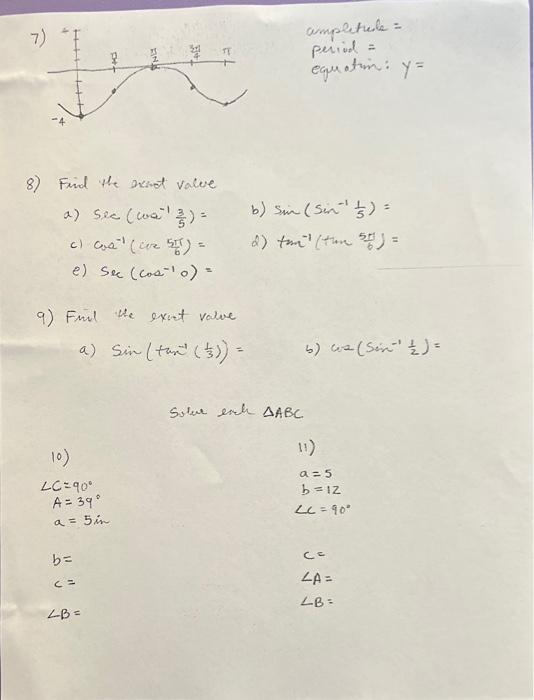 7)
4
π/4
π/2
3π/4
π
-4
amplitude =
period =
equation: y =
8) Find the exact value
a) Sec (cos⁻¹ 3/5) =
b) Sin (Sin⁻¹ 1/5) =
c) Cos⁻¹ (cos 5π/6) =
d) tan⁻¹ (tan 5π/6) =
e) Sec (cos⁻¹ 0) =
9) Find the exact value
a) Sin (tan⁻¹ (1/3)) =
b) cos (Sin⁻¹ 1/2) =
Solve each △ABC
10)
∠C = 90°
A = 39°
a = 5 in
b =
c =
∠B =
11)
a = 5
b = 12
∠C = 90°
c =
∠A =
∠B =